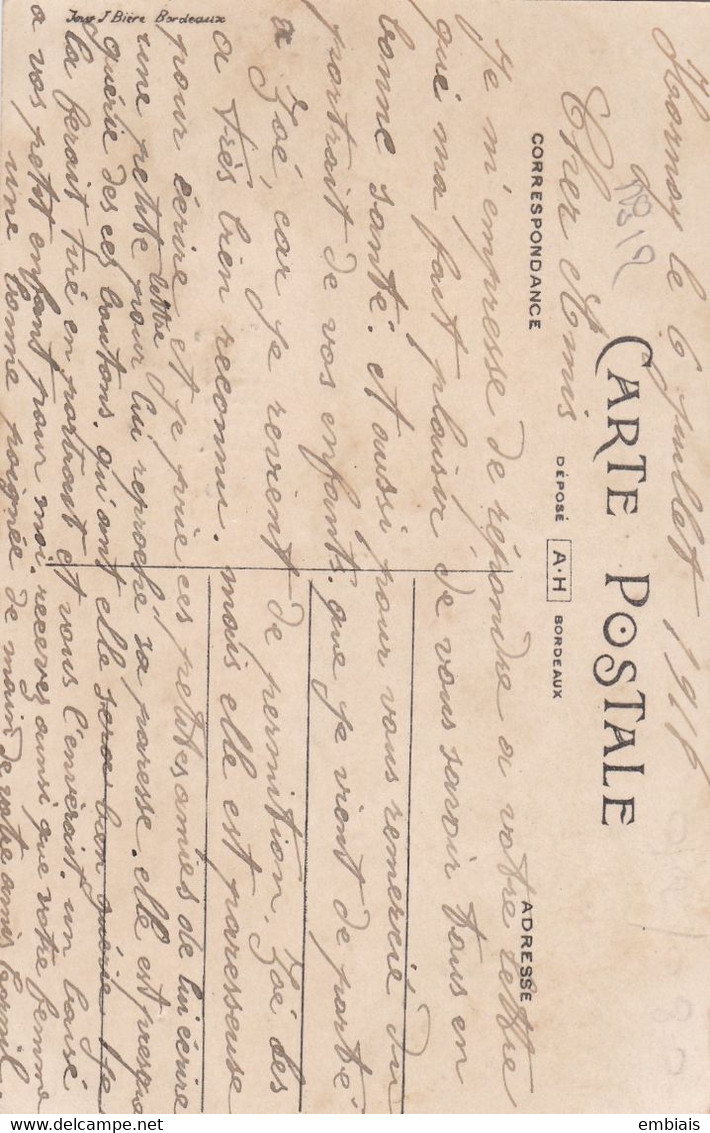 Hornoy le 6 Juillet 1916
CARTE POSTALE
Cher Amis
DÉPOSÉ A·H BORDEAUX
CORRESPONDANCE
ADRESSE
Je m'empresse de répondre a votre lettre
qué ma fait plaisir de vous savoir tous en
bonne santé. et aussi pour vous remercié du
portrait de vos enfants. que je vient de porté
a Zoé, car je revient de permition. Zoé les
a très bien reconnu. mais elle est paresseuse
pour écrire et je prie ces petites amies de lui écrire
une petite lettre pour lui reproché sa paresse. elle est presque
guérie des ces boutons. qu'ant elle sera bien guérie je
la feroit tiré en portrait et vous l'envérait. un baisé
a vos petit enfant pour moi. recevez ainsi que votre femme
une bonne poignée de main de votre amis
Impr J Bière Bordeaux
embiais